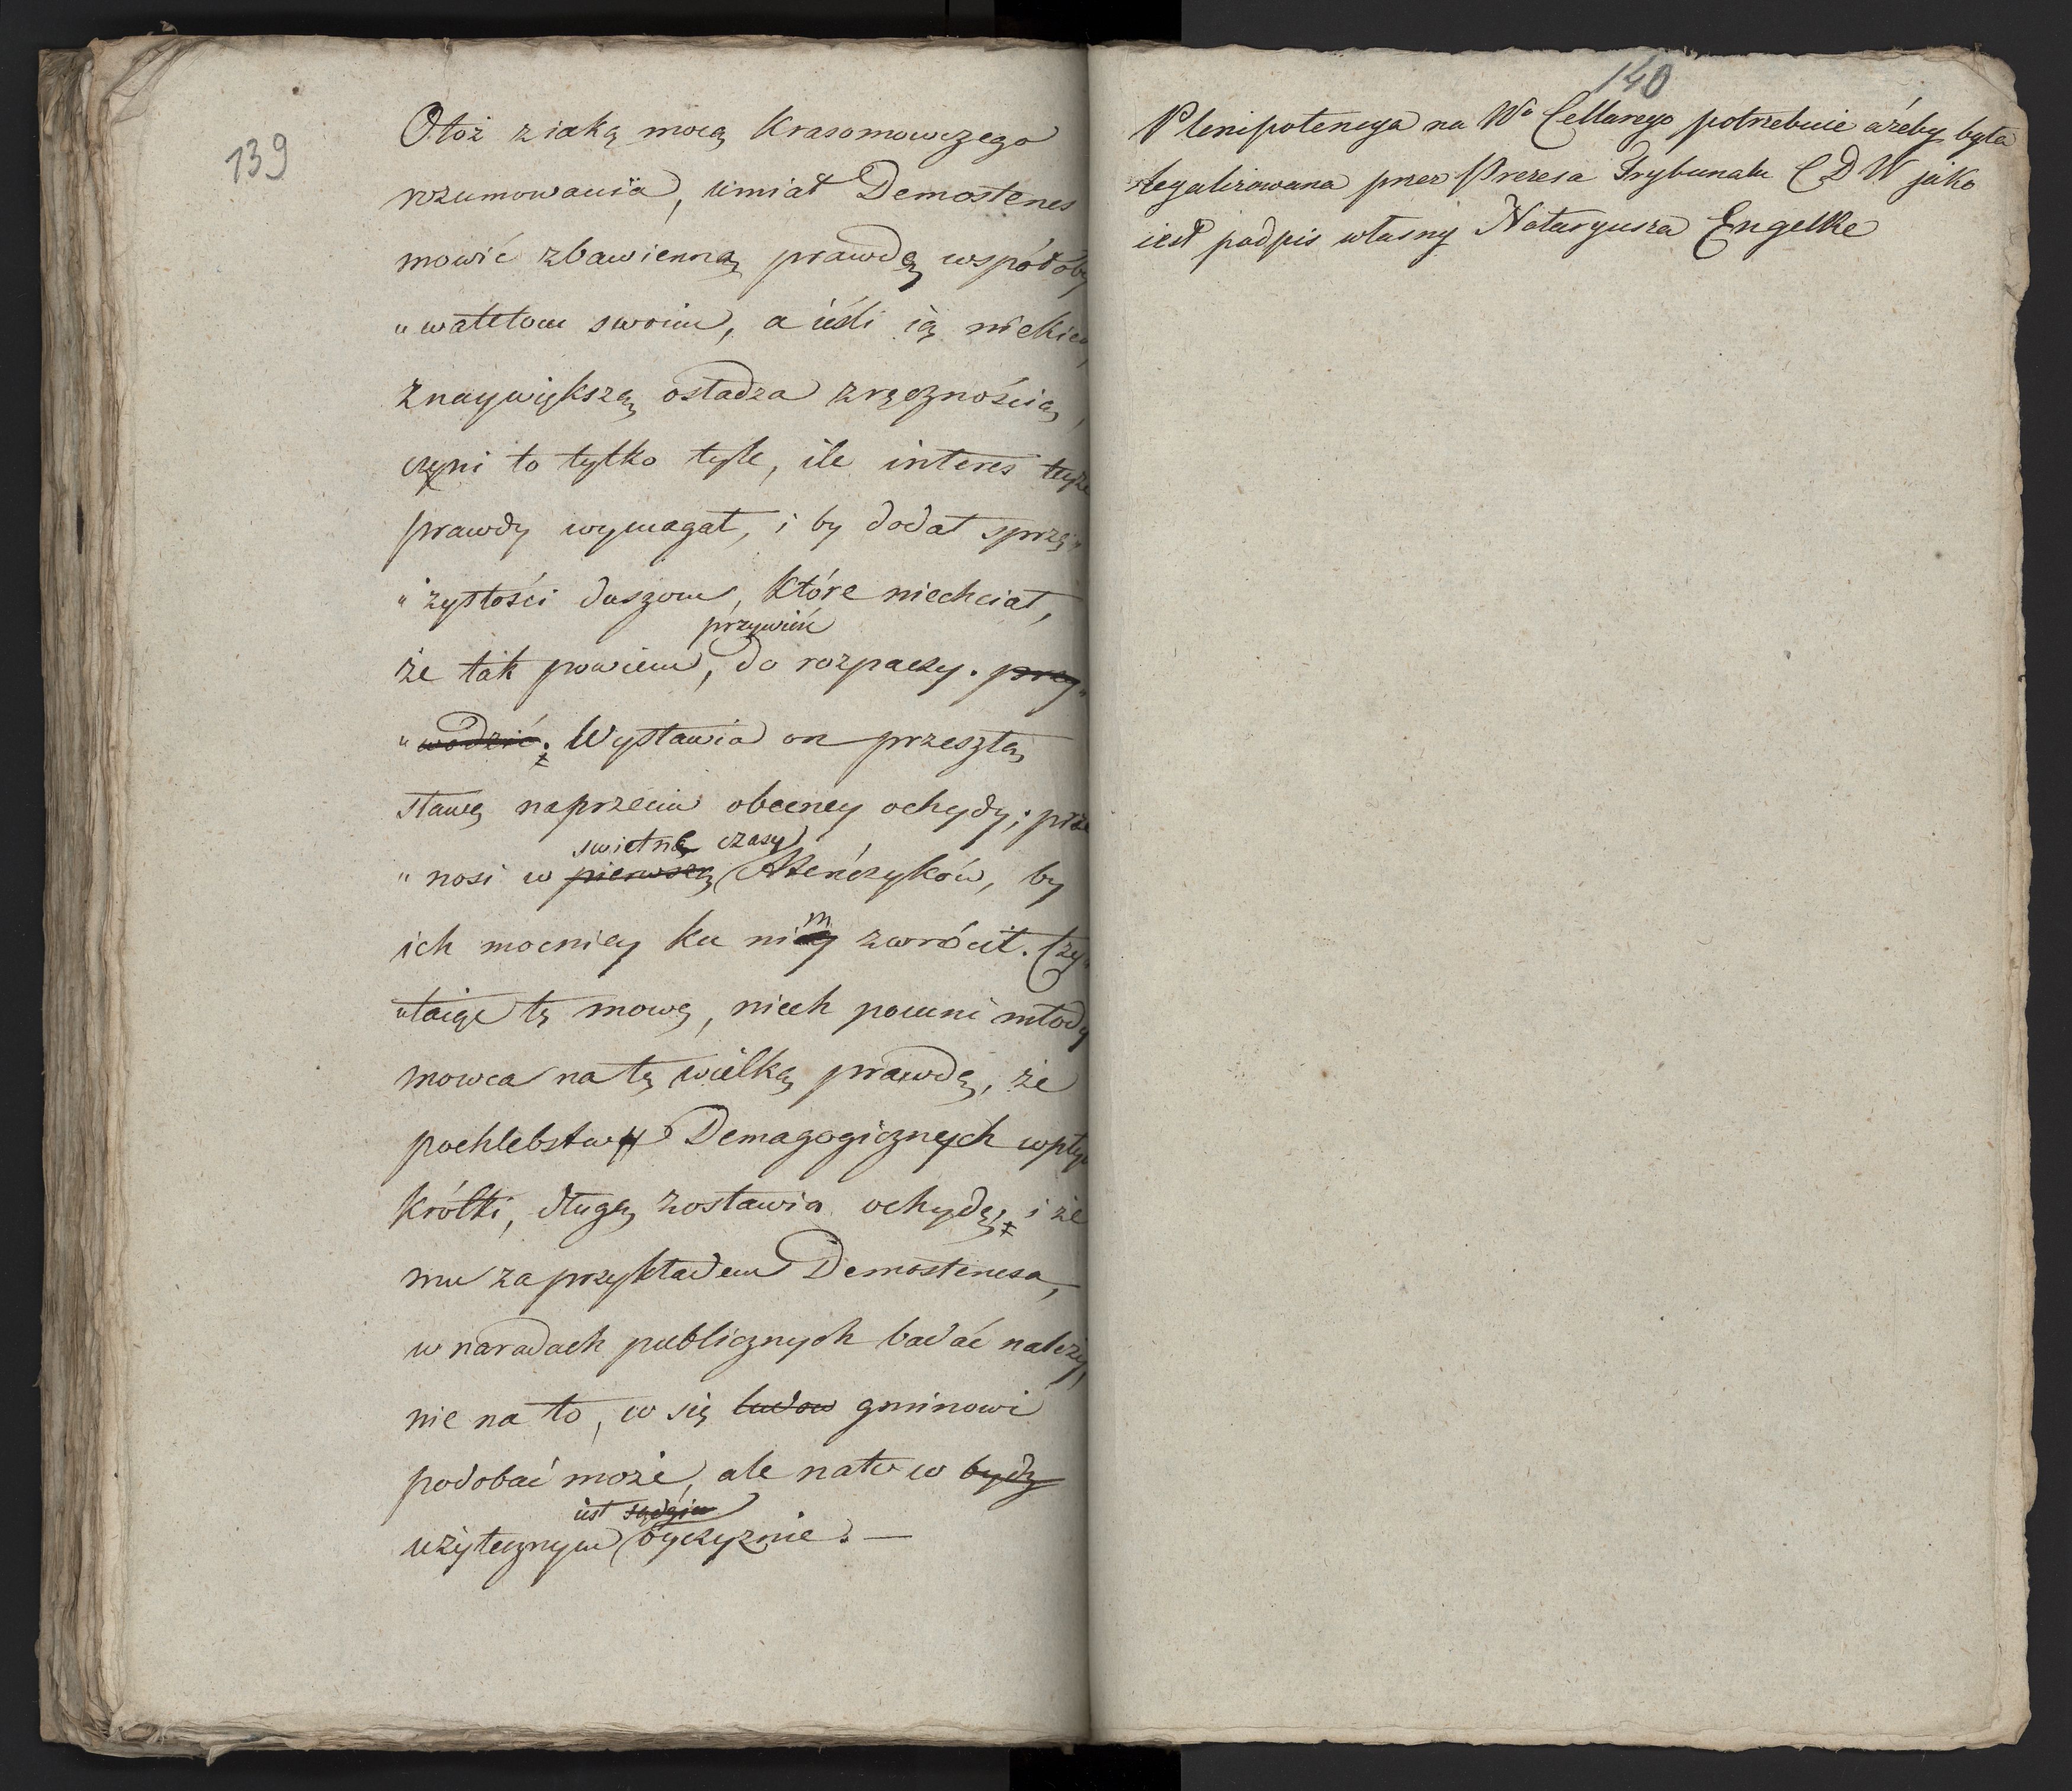 139
Otoż z iaką mocą Krasomowczego
rozumowania, umiał Demostenes
mowić zbawienną prawdę współoby
„watelom swoim, a ieśli ią niekied
z naywiększą osładza zręcznością,
czyni to tylko tyle, ile interes teyże
prawdy wymagał, i by dodał sprzę„
„żystości duszom, które niechciał,
przywieść
że tak powiem, do rozpaczy. przy„
„wodzić. Wystawia on przeszłą
sławę naprzeciw obecney ochydy; prze
swietne czasy
„nosi w pierwszą Ateńczyków, by
m
ich mocniey ku niey zwrócił. Czy„
„taiąc tę mowę, niech pomni młody
mowca na tę wielką prawdę, że
pochlebstw Demagogicznych wpływ
krótki, długą zostawia ochydę; i że
mu za przykładem Demostenesa,
w naradach publicznych badać należy,
nie na to, co się ludow gminowi
podobać może, ale nato co będzie
iest
użytecznym oyczyznie. —
140
Plenipotencya na Wo Cellarego potrzebuie ażeby była
legalizowana przez Prezesa Trybunału C D W jako
iest podpis własny Notaryusza Engelke